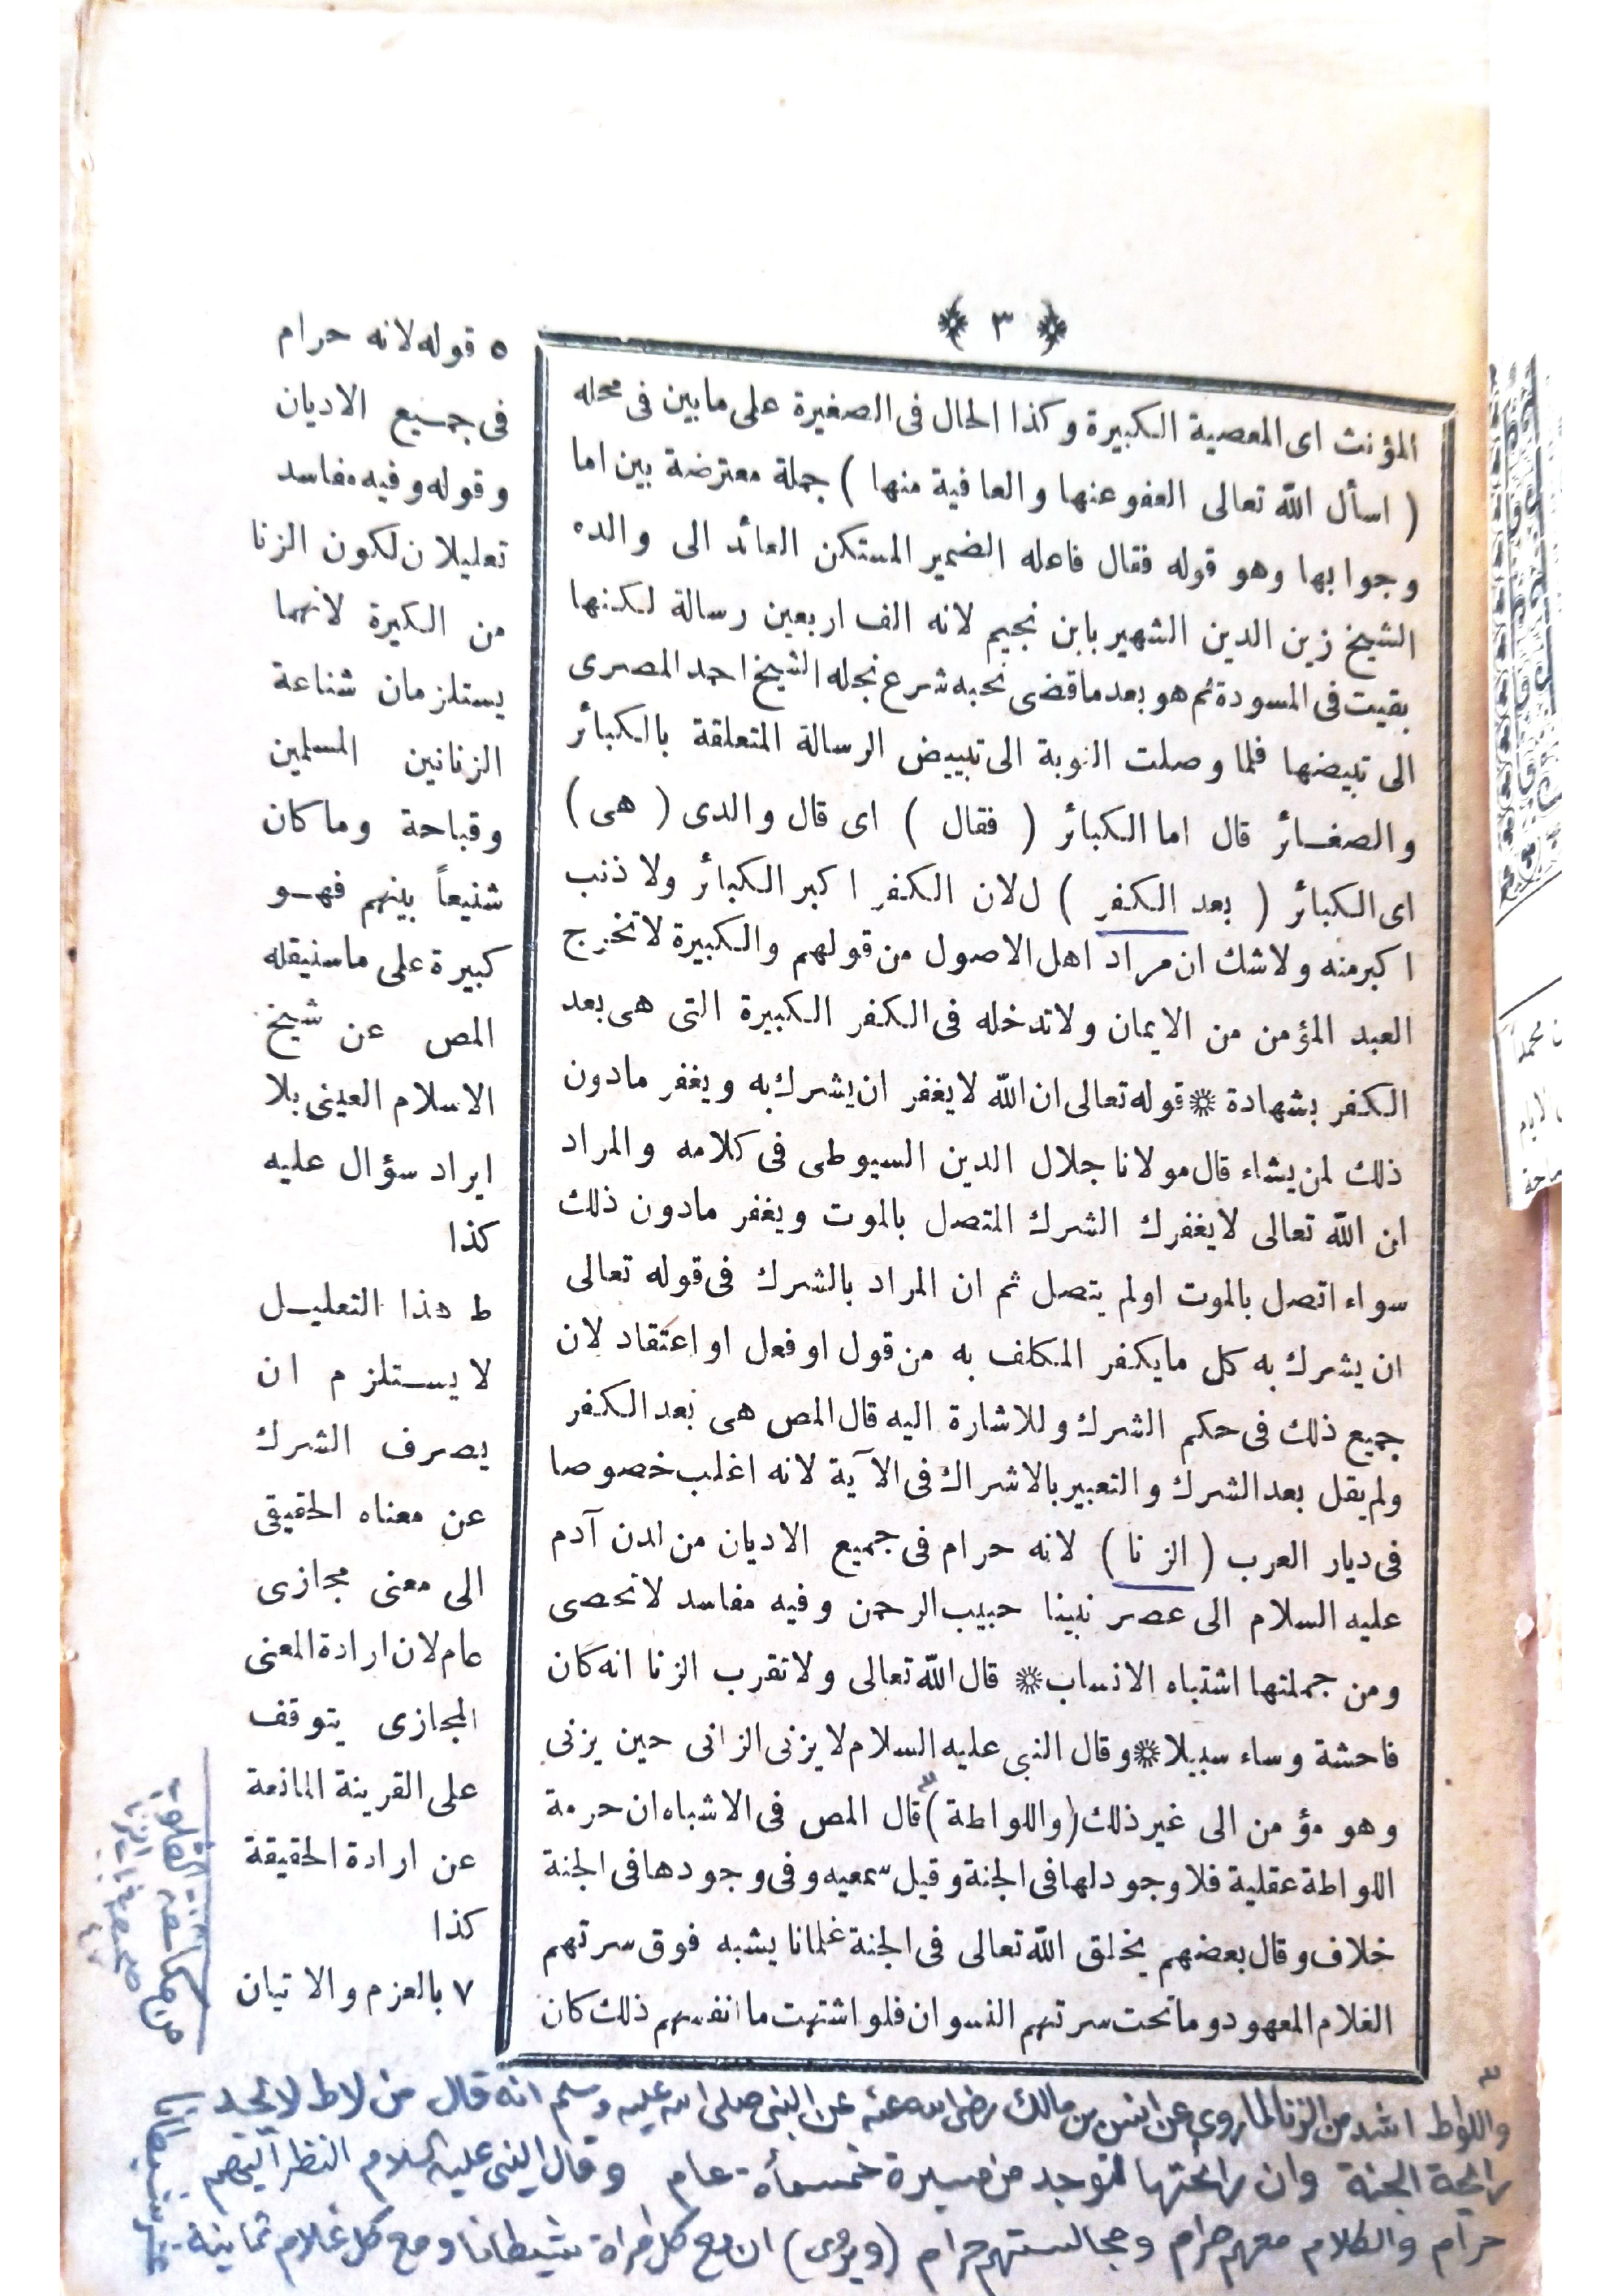 ﴿ ٣ ﴾
المؤنث اى المعصية الكبيرة وكذا الحال فى الصغيرة على مابين فى محله
( اسأل الله تعالى العفو عنها والعافية منها ) جملة معترضة بين اما
وجوابها وهو قوله فقال فاعله الضمير المستكن العائد الى والده
الشيخ زين الدين الشهير بابن نجيم لانه الف اربعين رسالة لكنها
بقيت فى المسودة ثم هو بعد ماقضى نحبه شرع نجله الشيخ احمد المصرى
الى تبيضها فلما وصلت النوبة الى تبييض الرسالة المتعلقة بالكبائر
والصغائر قال اما الكبائر ( فقال ) اى قال والدى ( هى )
اى الكبائر ( بعد الكفر ) ل لان الكفر اكبر الكبائر ولا ذنب
اكبر منه ولاشك ان مراد اهل الاصول من قولهم والكبيرة لاتخرج
العبد المؤمن من الايمان ولاتدخله فى الكفر الكبيرة التى هى بعد
الكفر بشهادة * قوله تعالى ان الله لايغفر ان يشرك به ويغفر مادون
ذلك لمن يشاء قال مولانا جلال الدين السيوطى فى كلامه والمراد
ان الله تعالى لايغفرك الشرك المتصل بالموت ويغفر مادون ذلك
سواء اتصل بالموت اولم يتصل ثم ان المراد بالشرك فى قوله تعالى
ان يشرك به كل مايكفر المكلف به من قول او فعل او اعتقاد لان
جميع ذلك فى حكم الشرك وللاشارة اليه قال المص هى بعد الكفر
ولم يقل بعد الشرك والتعبير بالاشراك فى الآية لانه اغلب خصوصا
فى ديار العرب ( الزنا ) لانه حرام فى جميع الاديان من لدن آدم
عليه السلام الى عصر نبينا حبيب الرحمن وفيه مفاسد لاتحصى
ومن جملتها اشتباه الانساب * قال الله تعالى ولاتقرب الزنا انه كان
فاحشة وساء سبيلا * وقال النبى عليه السلام لايزنى الزانى حين يزنى
وهو مؤمن الى غير ذلك ( واللواطة ) ٣ قال المص فى الاشباه ان حرمة
اللواطة عقلية فلا وجود لها فى الجنة وقيل سمعيه وفى وجودها فى الجنة
خلاف وقال بعضهم يخلق الله تعالى فى الجنة غلمانا يشبه فوق سرتهم
الغلام المعهود وماتحت سرتهم النسوان فلو اشتهت ما انفسهم ذلك كان
٥ قوله لانه حرام
فى جميع الاديان
وقوله وفيه مفاسد
تعليلان لكون الزنا
من الكيرة لانهما
يستلزمان شناعة
الزنانين المسلمين
وقباحة وماكان
شنيعاً بينهم فهو
كبيرة على ماسنيقله
المص عن شيخ
الاسلام العينى بلا
ايراد سؤال عليه
كذا
ط هذا التعليل
لا يستلزم ان
يصرف الشرك
عن معناه الحقيقى
الى معنى مجازى
عام لان ارادة المعنى
المجازى يتوقف
على القرينة المانعة
عن ارادة الحقيقة
كذا
٧ بالعزم والاتيان
٣
واللواط اشد من الزنا لما روى عن انس بن مالك رضى الله عنه عن النبى صلى الله عليه وسلم انه قال من لاط لا يجد
رائحة الجنة وان رائحتها لتوجد من مسيرة خمسمأة عام وقال النبى عليه السلام النظر اليهم
حرام والكلام معهم حرام ومجالستهم حرام (ويروى) ان مع كل امرأة شيطانا ومع كل غلام ثمانية
عشر شيطانا
من مكاشفة القلوب